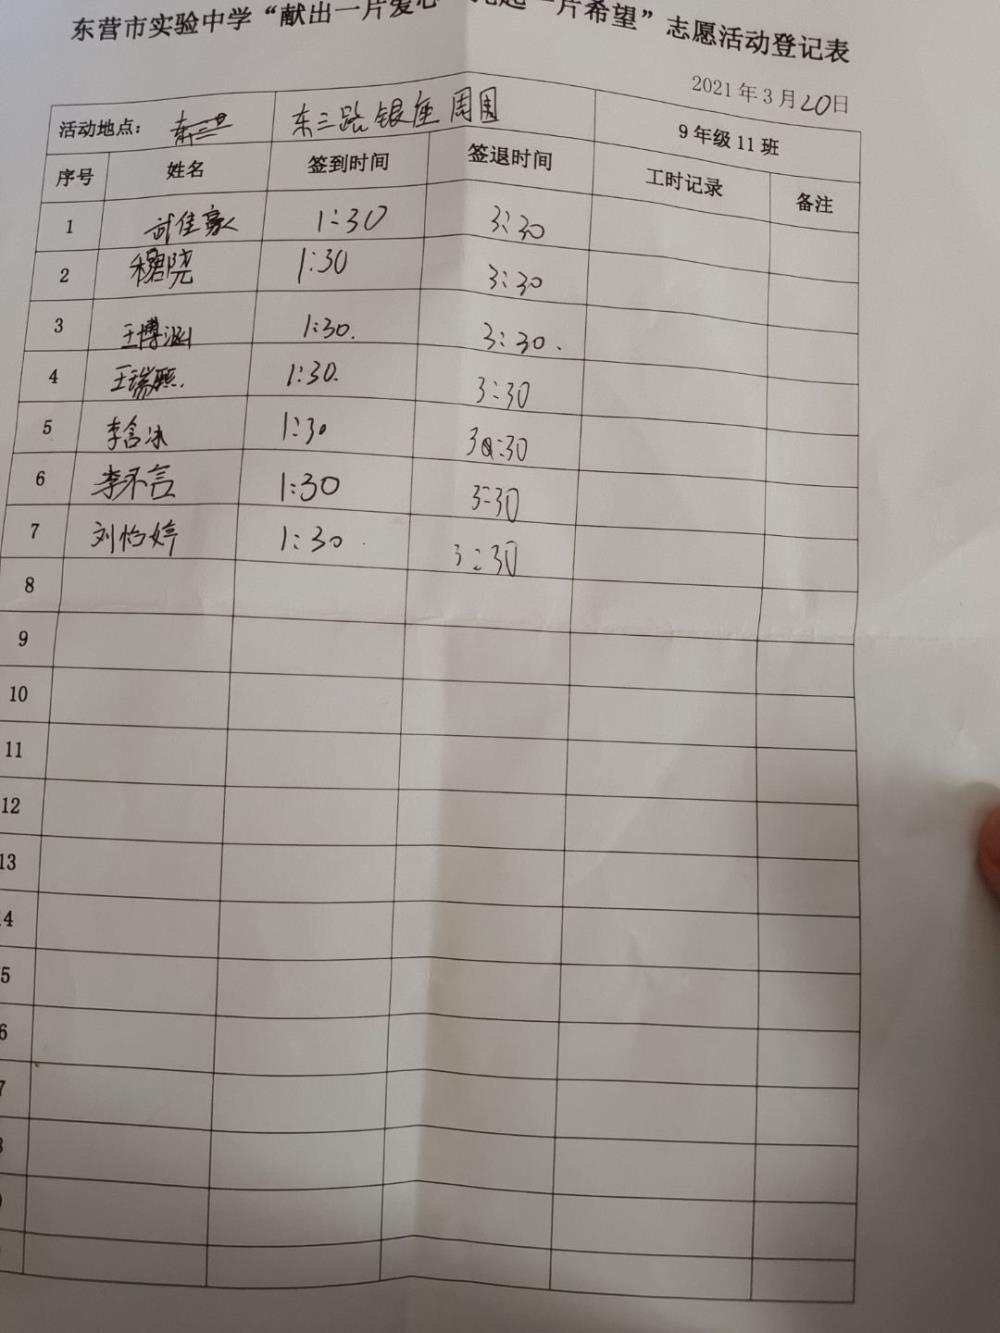 东营市实验中学“献出一片爱心 托起一片希望”志愿活动登记表
2021年3月20日
活动地点： 东三路银座周围 9年级11班
序号 姓名 签到时间 签退时间 工时记录 备注
1 武佳豪 1:30 3:30
2 1:30 3:30
3 王博涵 1:30. 3:30.
4 王瑞熙. 1:30. 3:30
5 李含冰 1:30 3:30
6 李不言 1:30 3:30
7 刘怡婷 1:30 3:30
8
9
10
11
12
13
4
5
6
7